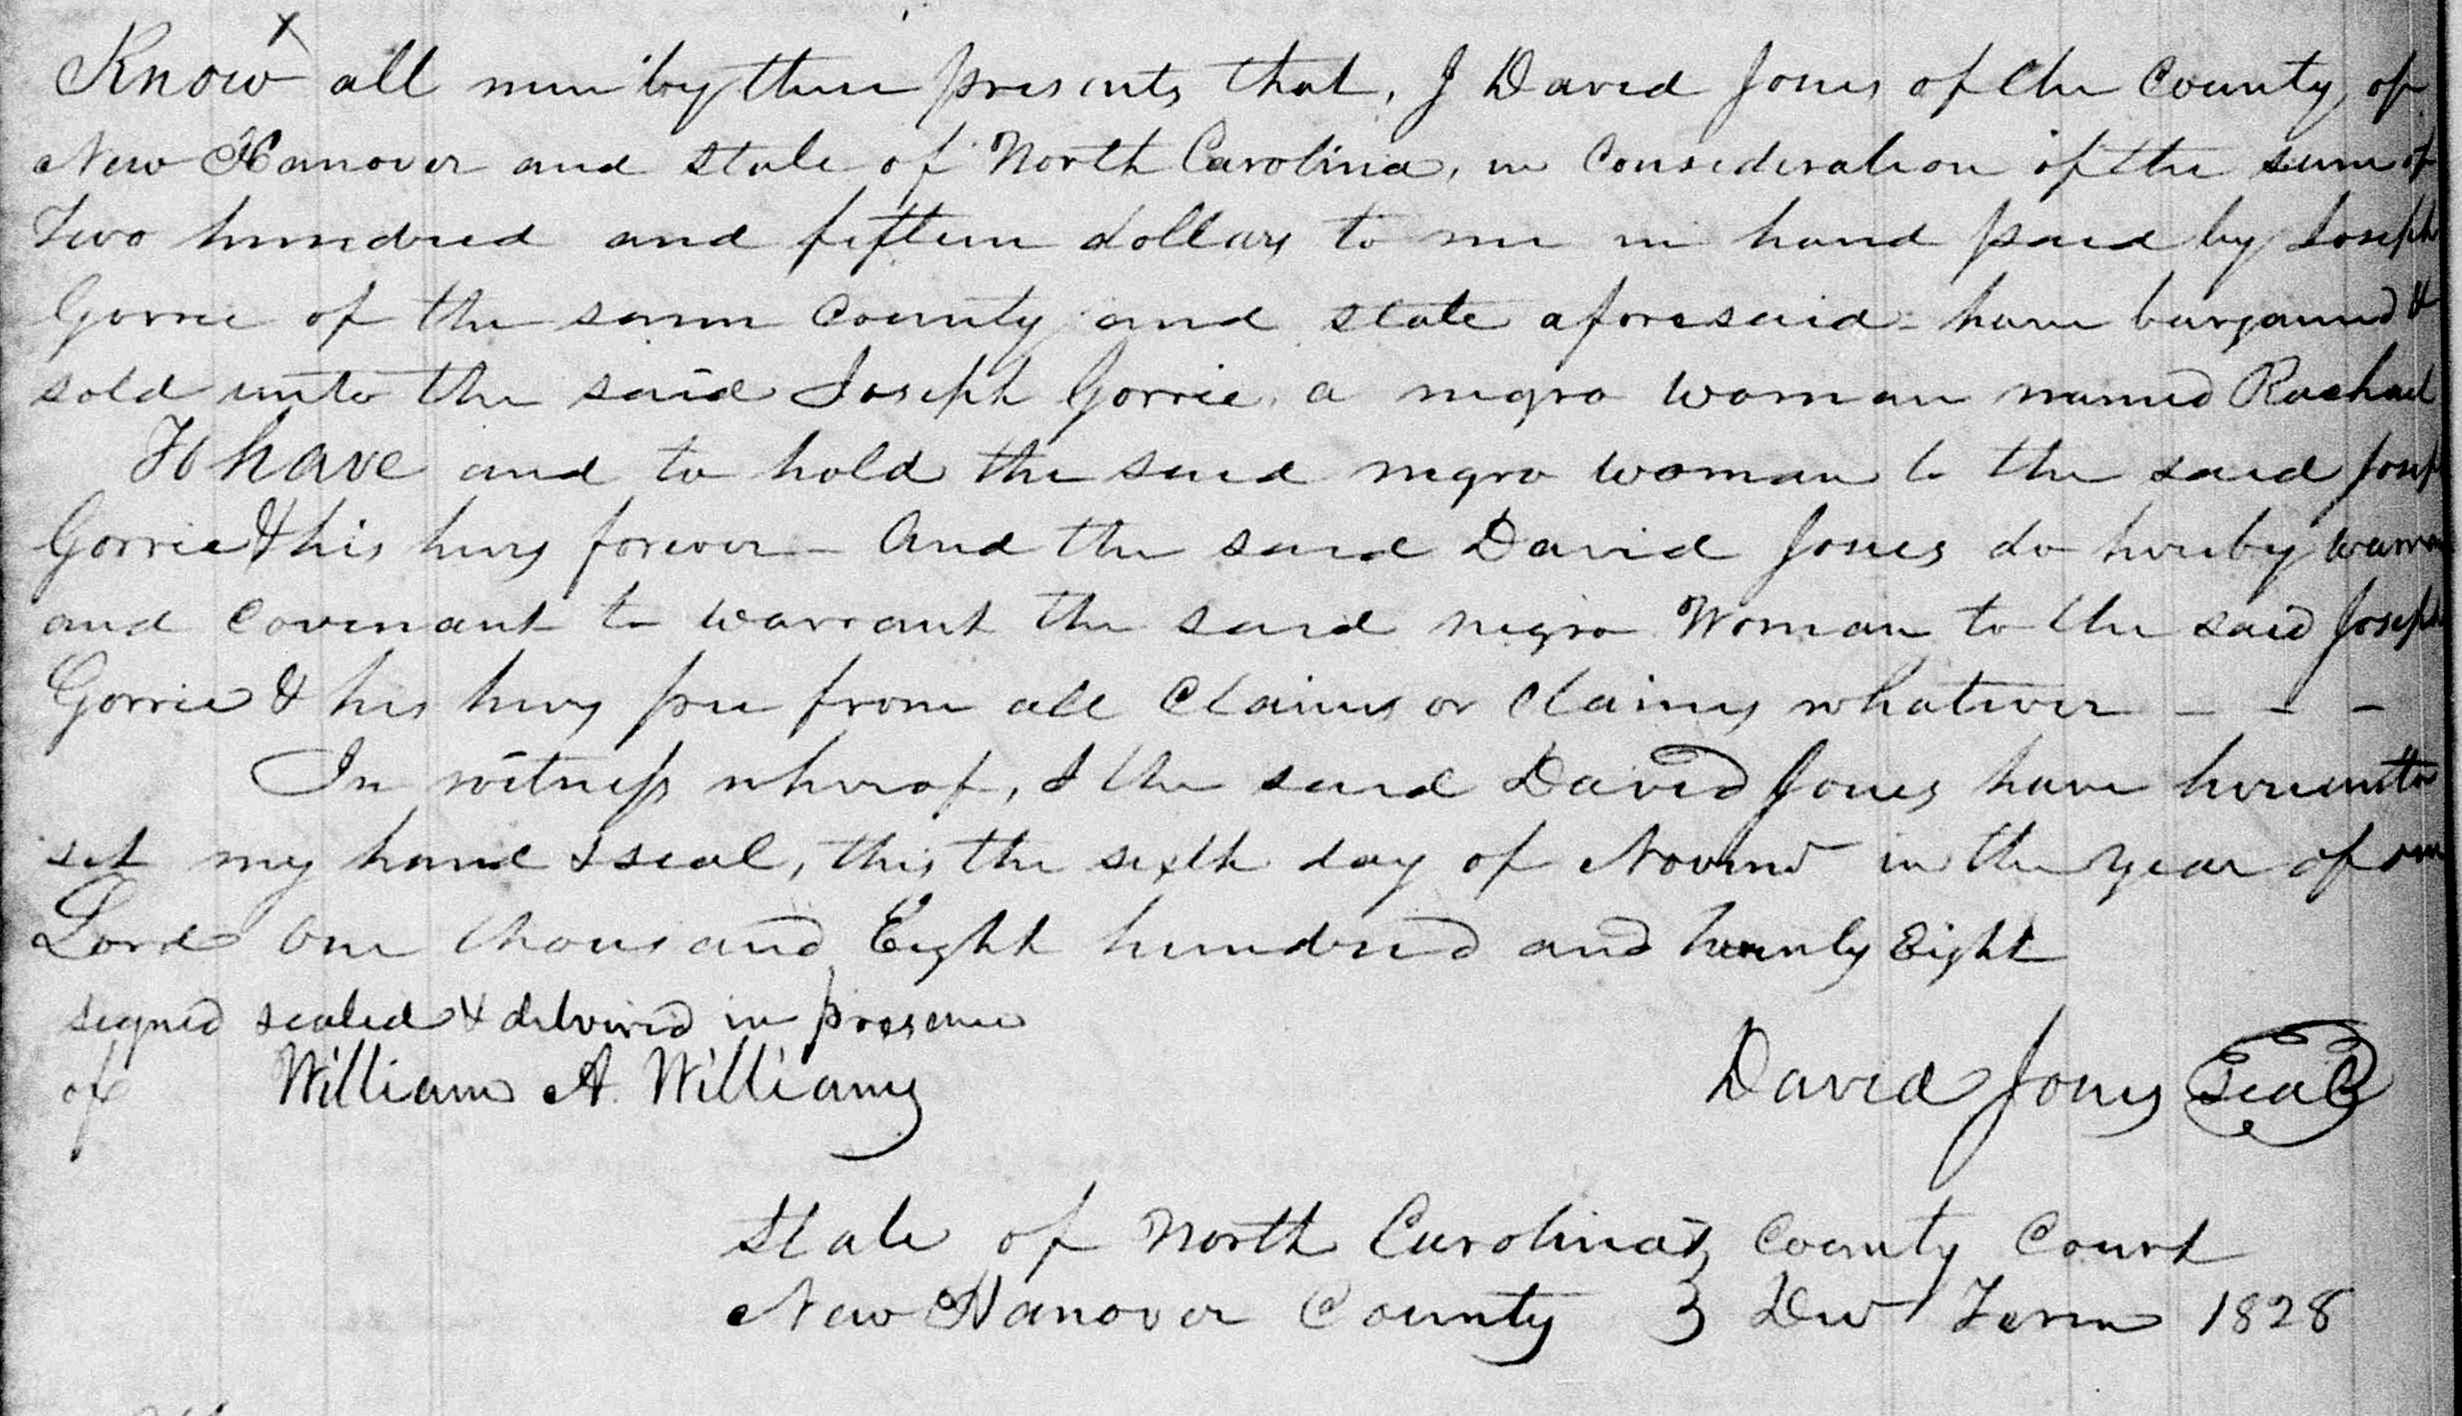 Know all men by these presents that, I David Jones of the County of
New Hanover and state of North Carolina, in Consideration of the sum of
Two hundred and fifteen dollars to me in hand paid by Joseph
Gorrie of the same County and state aforesaid have bargained &
sold unto the said Joseph Gorrie, a negro woman named Rachael
To have and to hold the said negro woman to the said Joseph
Gorrie & his heirs forever - And the said David Jones do hereby warrant
and Covenant to warrant the said negro Woman to the said Joseph
Gorrie & his heirs free from all Claims or Claims whatever - - -
In witness whereof, I the said David Jones have hereunto
set my hand & seal, this the sixth day of Novemr in the year of our
Lord One thousand Eight hundred and twenty Eight
signed sealed & delivered in presence
of William A. Williams David Jones Seal
State of North Carolina } County Court
New Hanover County } Decr Term 1828